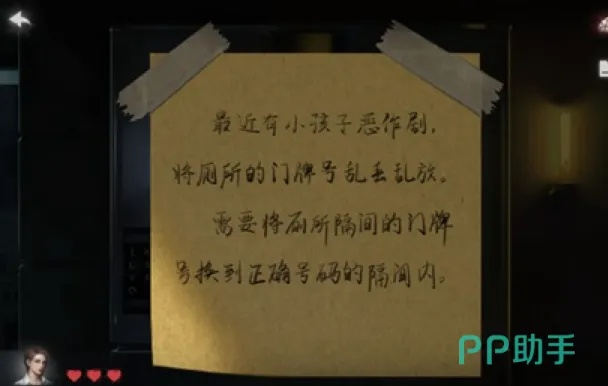 最近有小孩子恶作剧，
将厕所的门牌号乱丢乱放。
需要将厕所隔间的门牌
号换到正确号码的隔间内。
PP助手